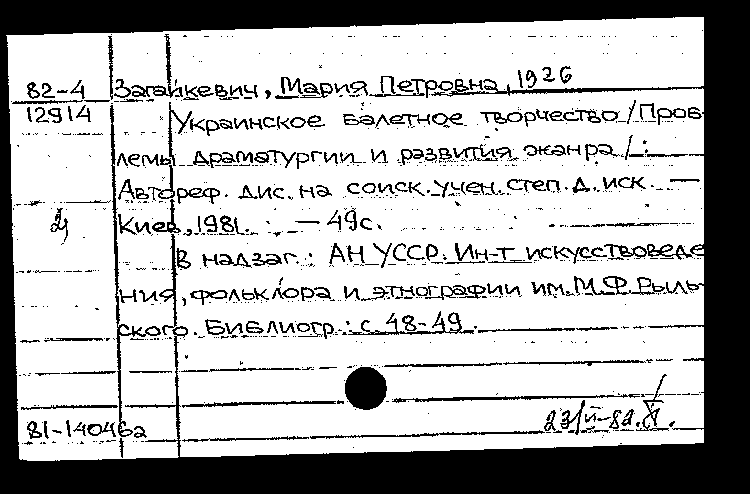 82-4 Загайкевич, Мария Петровна, 1926
12914 Украинское балетное творчество /Проб-
лемы драматургии и развития жанра/:
Автореф. дис. на соиск. учен. степ. д. иск. —
Киев, 1981. — 49с.
В надзаг.: АН УССР. Ин-т искусствоведе
ния, фольклора и этнографии им. М.Ф. Рыль-
ского. Библиогр.: с. 48-49.
81-14046а